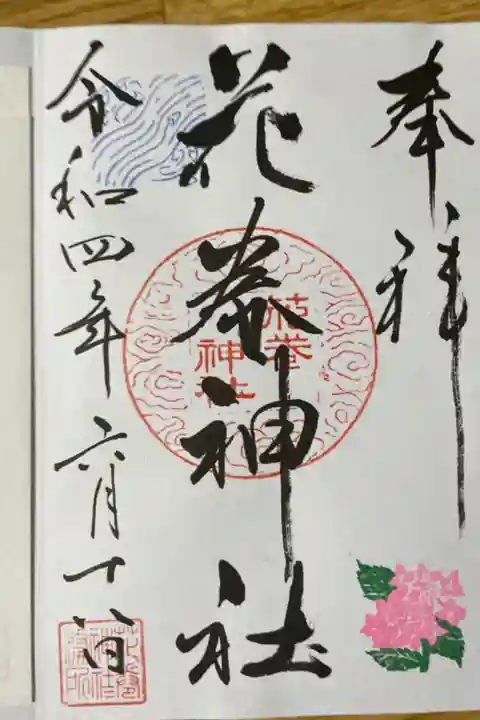 奉拝
花巻神社
花巻
神社
令和四年六月十八日